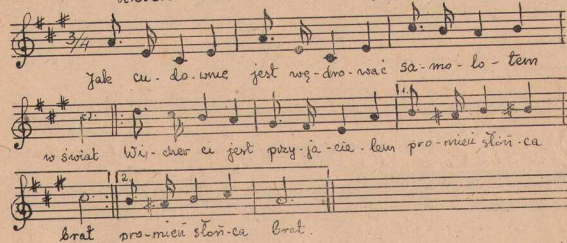 3/4
Jak cu-do-wnie jest wę-dro-wać sa-mo-lo-tem
1.
w świat Wi-cher ci jest przy-ja-cie-lem pro-mień słoń-ca
2.
brat pro-mień słoń-ca brat.